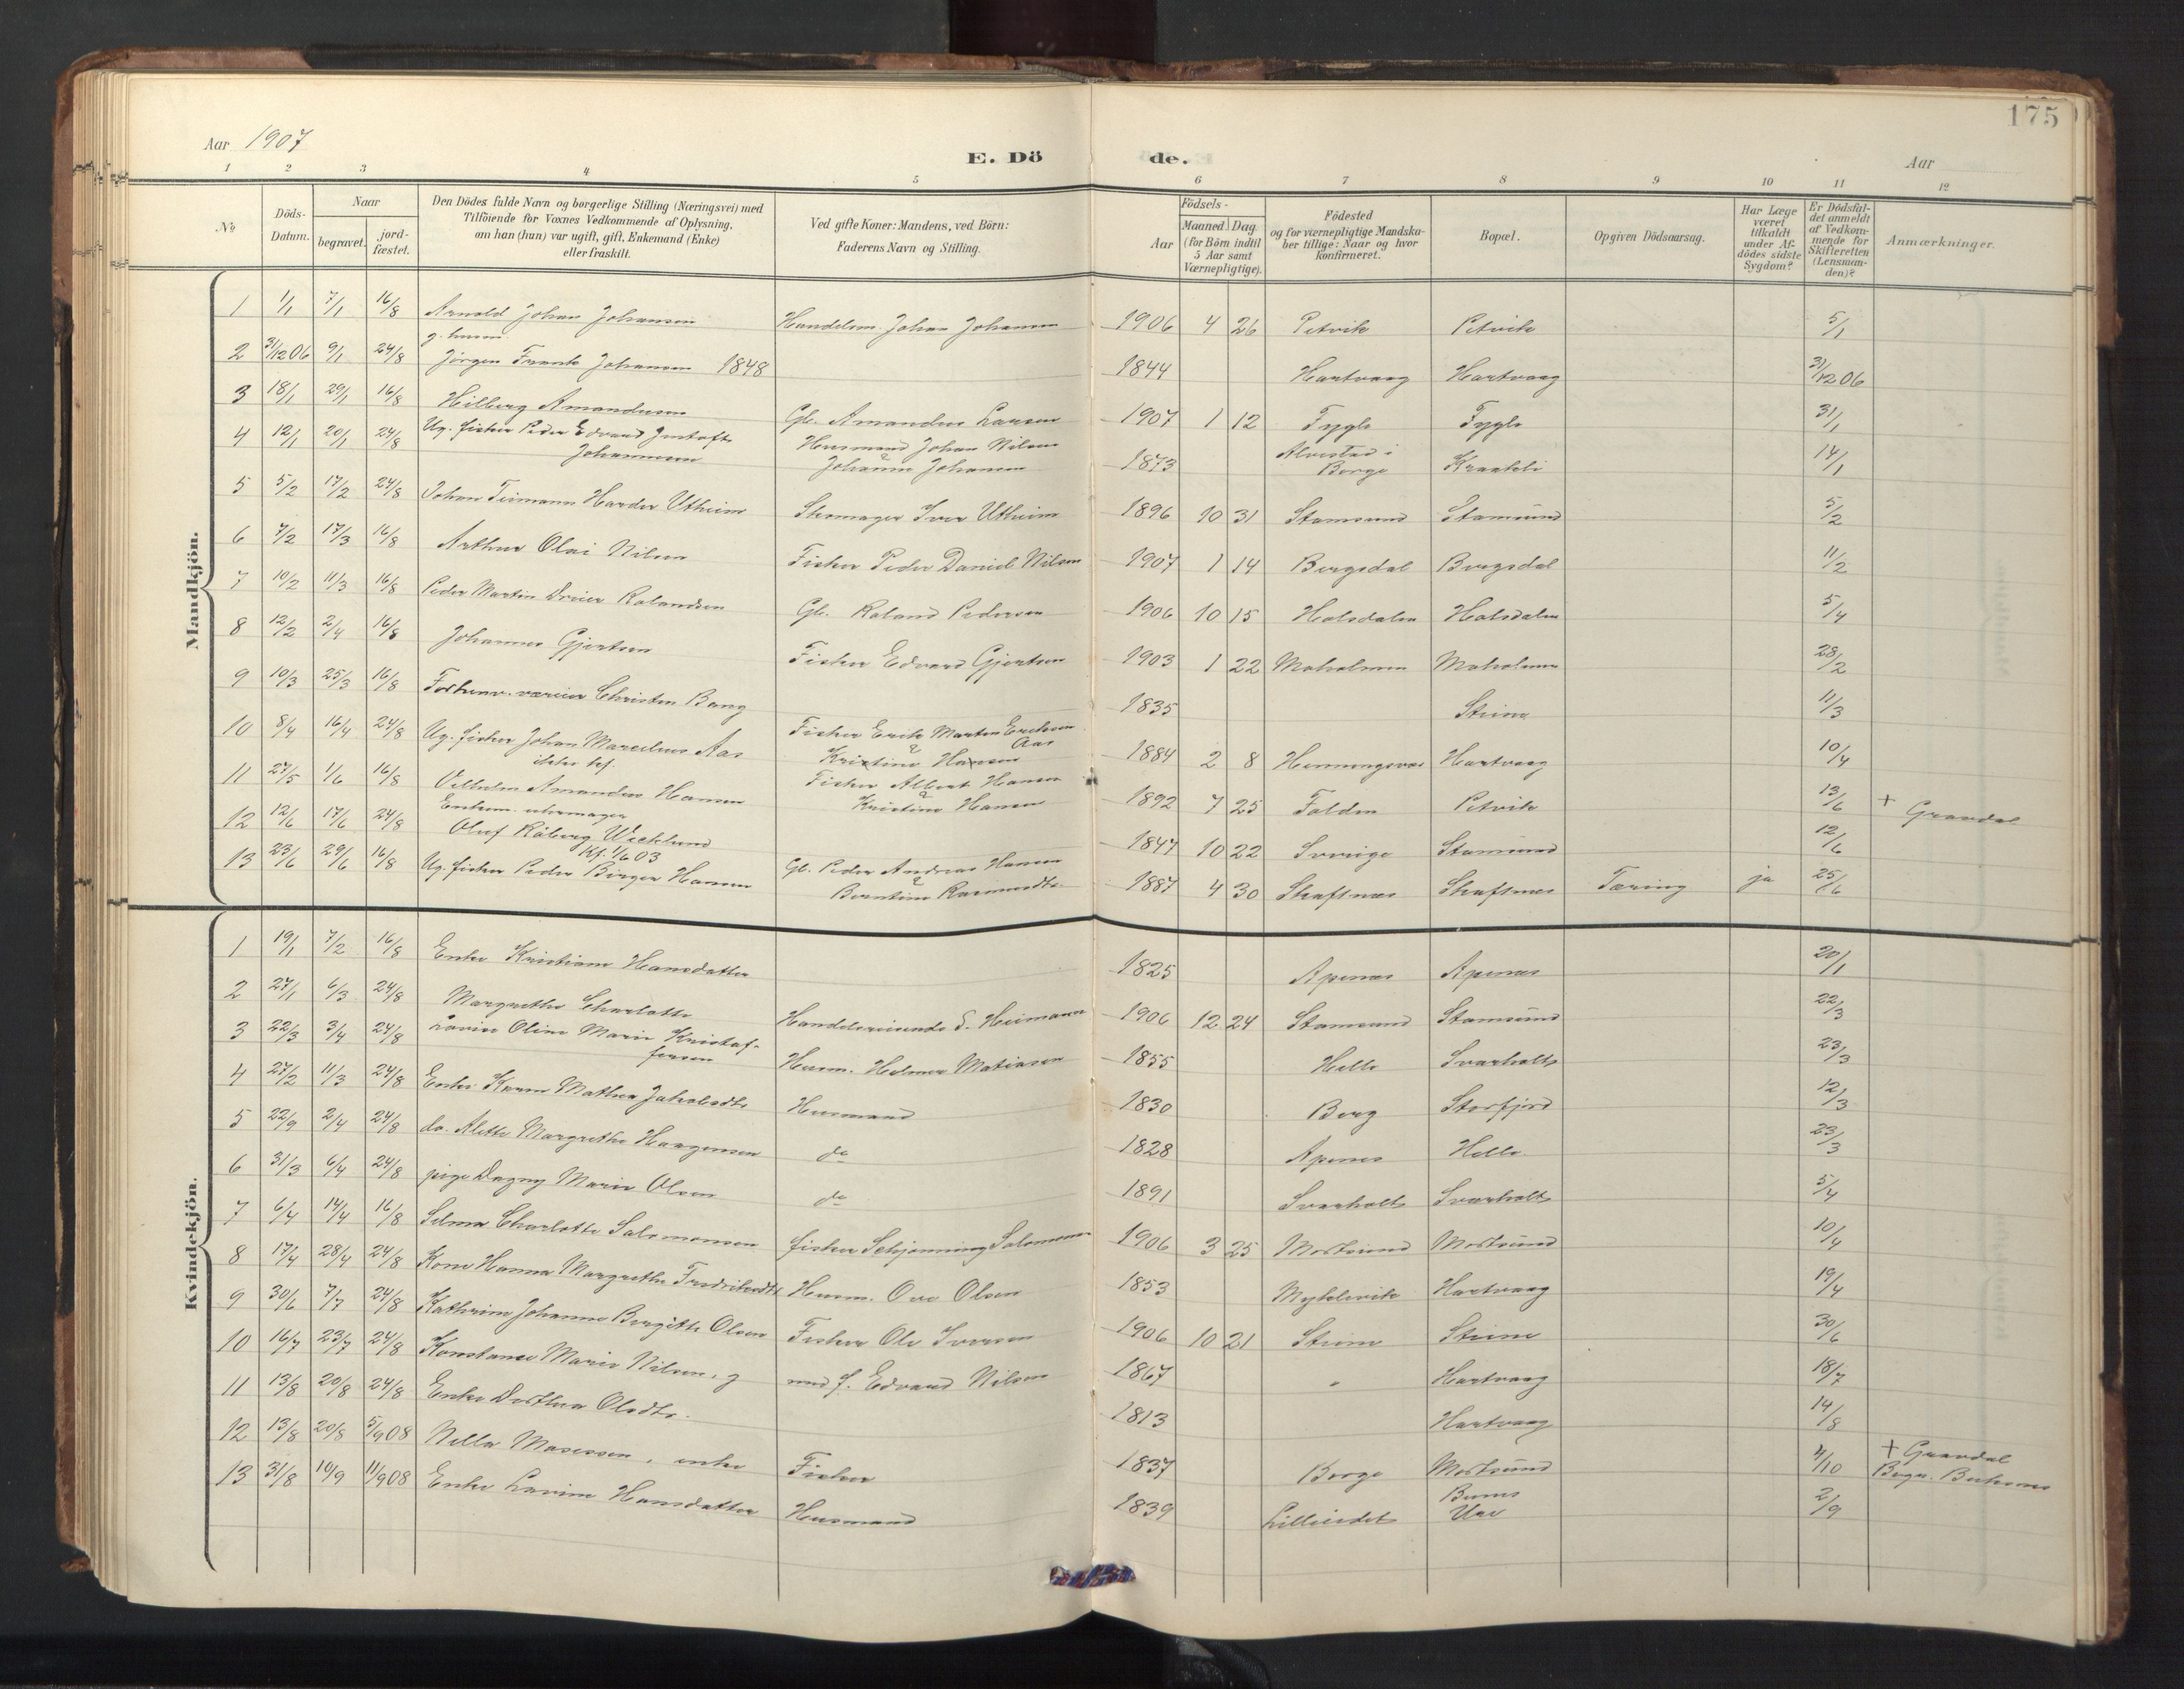 175
Aar 1907
E. Dö de.
Aar
1 2 3 4 5 6 7 8 9 10 11 12
No
Döds-Datum.
Naar
begravet.
jord-fæstet.
Den Dödes fulde Navn og borgerlige Stilling (Næringsvei) med
Tilföiende for Voxnes Vedkommende af Oplysning,
om han (hun) var ugift, gift, Enkemand (Enke)
eller fraskilt.
Ved gifte Koner: Mandens, ved Börn:
Faderens Navn og Stilling.
Födsels-
Aar
Maaned. Dag.
(for Börn indtil
5 Aar samt
Værnepligtige).
Födested
og for værnepligtige Mandska-
ber tillige: Naar og hvor
konfirmeret.
Bopæl.
Opgiven Dödsaarsag.
Har Læge
været
tilkaldt
under Af-
dödes sidste
Sygdom?
Er Dödsfal-
det anmeldt
af Vedkom-
mende for
Skifteretten
(Lensman-
den)?
Anmærkninger.
Mandkjön.
1 1/1 7/1 16/8 Arnold Johan Johansen Handelsm. Johan Johansen 1906 4 26 Petvik Petvik 5/1
2 31/12 06 9/1 24/8 g. husm. Jörgen Frantz Johansen 1848 1844 Hartvaag Hartvaag 31/12 06
3 18/1 29/1 16/8 Hilberg Amandusen Gb. Amandus Larsen 1907 1 12 Fygle Fygle 31/1
4 12/1 20/1 24/8 Ug. fisker Peder Edvard Gustaft Johannesen Husmand Johan Nilsen & Johanna Johansen 1873 Alvestad i Borge Kraakli 14/1
5 5/2 17/2 24/8 Johan Teimann Harder Utheim Skomager Iver Utheim 1896 10 31 Stamsund Stamsund 5/2
6 7/2 17/3 16/8 Arthur Olai Nilsen Fisker Peder Daniel Nilsen 1907 1 14 Bergsdal Bergsdal 11/2
7 10/2 11/3 16/8 Peder Martin Dreier Rolandsen Gb. Roland Pedersen 1906 10 15 Holsdalen Holsdalen 5/4
8 12/2 2/4 16/8 Johannes Gjertsen Fisker Edvard Gjertsen 1903 1 22 Moholmen Moholmen 28/2
9 10/3 25/3 16/8 Christen Bang 1835 Steine 11/3
10 8/4 16/4 24/8 Ug. fisker Johan Marcelius Aas Fisker Erik Martin Eriksen Aas & Kristine Hansen 1884 2 8 Henningsvær Hartvaag 10/4
11 27/5 1/6 16/8 Vilhelm Amandus Hansen Fisker Albert Hansen & Kristine Hansen 1892 7 25 Folden Petvik 13/6 + Gravdal
12 12/6 17/6 24/8 Enkem. urmager Oluf Råberg Wecklund 1847 10 22 Sverige Stamsund 12/6
13 23/6 29/6 16/8 Kf. 1/6 03 Ug. fisker Peder Birger Hansen Gb. Peder Andreas Hansen & Berntine Rasmusdtr 1887 4 30 Skafsnes Skafsnes Tæring ja 25/6
Kvindekjön.
1 19/1 7/2 16/8 Enke Kristiane Hansdatter 1825 Apenes Apenes 20/1
2 27/1 6/3 24/8 Margrethe Charlotte Handelsreisende S. Heimann 1906 12 24 Stamsund Stamsund 22/3
3 22/3 3/4 24/8 Lovise Oline Marie Kristof-fersen Husm. Helmer Matiasen 1855 Helle Svarholt 23/3
4 27/2 11/3 24/8 Enke Karen Mathea Jakobsdtr Husmand 1830 Borg Storfjord 12/3
5 22/9 2/4 24/8 do. Alette Margrethe Haagensen do 1828 Apenes Helle 23/3
6 31/3 6/4 24/8 pige Dagny Marie Olsen do 1891 Svarholt Svarholt 5/4
7 6/4 14/4 16/8 Selma Charlotte Salomonsen fisker Schjønning Salomonsen 1906 3 25 Mortsund Mortsund 10/4
8 17/4 28/4 24/8 Kone Hanna Margrethe Fredriksdtr Husm. Ove Olsen 1853 Myklevik Hartvaag 19/4
9 30/6 7/7 24/8 Kathrine Johanne Bergitte Olsen Fisker Ole Iversen 1906 10 21 Steine Steine 30/6
10 16/7 23/7 24/8 Konstanse Marie Nilsen, g med f. Edvard Nilsen 1867 " Hartvaag 18/7
11 13/8 20/8 24/8 Enke Dorthea Olsdtr. 1813 Hartvaag 14/8
12 13/8 20/8 5/9 08 Nella Mosessen, enke Fisker 1837 Borge Mortsund 4/10 + Gravdal
13 31/8 10/9 11/9 08 Enke Lovise Hansdatter Husmand 1839 Lilleeidet Ure 2/9